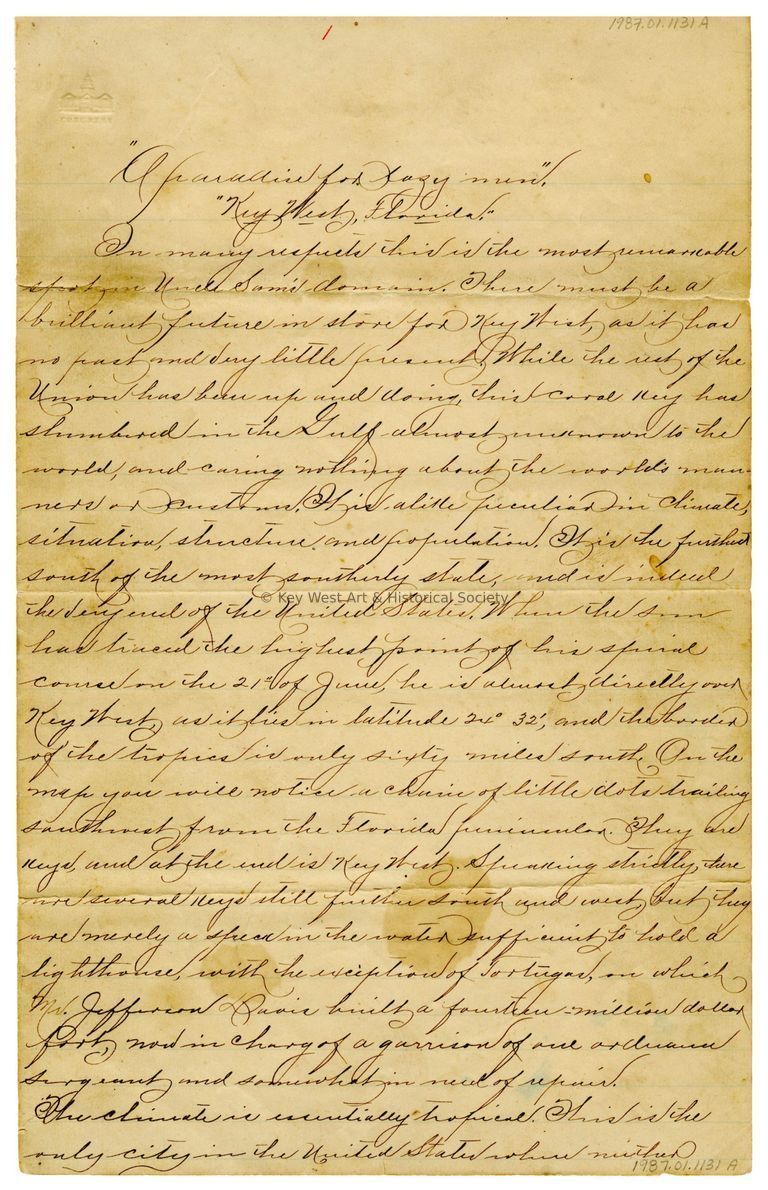 1987.01.1131 A
CONGRESS
"A paradise for Lazy men".
"Key West, Florida."
In many respects this is the most remarkable
spot in Uncle Sam's domain. There must be a
brilliant future in store for Key West, as it has
no past and very little present. While the rest of the
Union has been up and doing, this coral key has
slumbered in the Gulf almost unknown to the
world, and caring nothing about the world's man-
ners or customs. It is alike peculiar in climate,
situation, structure and population. It is the furthest
south of the most southerly state, and is indeed
© Key West Art & Historical Society
the very end of the United States. When the sun
has traced the highest point of his spiral
course on the 21st of June, he is almost directly over
Key West, as it lies in latitude 24° 32', and the border
of the tropics is only sixty miles south. On the
map you will notice a chain of little dots trailing
southwest from the Florida peninsular. They are
keys, and at the end is Key West. Speaking strictly, there
are several keys still further south and west, but they
are merely a speck in the water sufficient to hold a
lighthouse, with the exception of Tortugas, on which
Mr. Jefferson Davis built a fourteen-million dollar
fort, now in charg of a garrison of one ordnance
sergeant and somewhat in need of repair.
The climate is essentially tropical. This is the
only city in the United States where neither
1987.01.1131 A